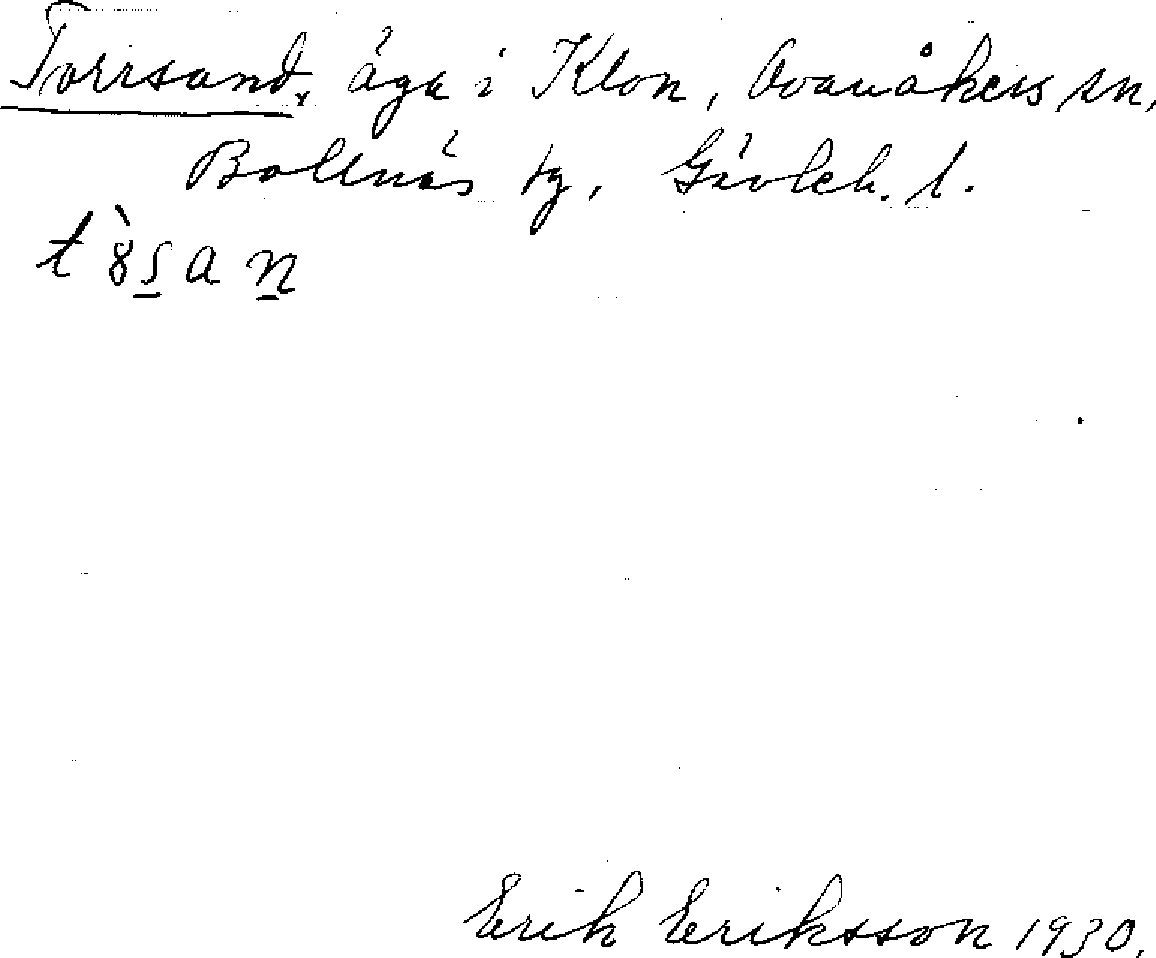 Torrsand, äga i Klon, Ovanåkers sn,
Bollnäs tg, Gävleb. l.
t 8̀ s̲ a n̲
Erik Eriksson 1930.